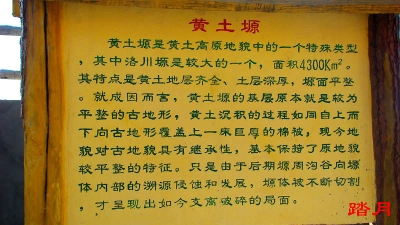 黄土塬
黄土塬是黄土高原地貌中的一个特殊类型,
其中洛川塬是较大的一个,面积4300Km²。
其特点是黄土地层齐全、土层深厚,塬面平整
。就成因而言,黄土塬的基层原本就是较为
平整的古地形,黄土沉积的过程如同自上而
下向古地形覆盖上一床巨厚的棉被,现今地
貌对古地貌具有继承性,基本保持了原地貌
较平整的特征。只是由于后期塬周沟谷向塬
体内部的溯源侵蚀和发展,塬体被不断切割
,才呈现出如今支离破碎的局面。
踏月